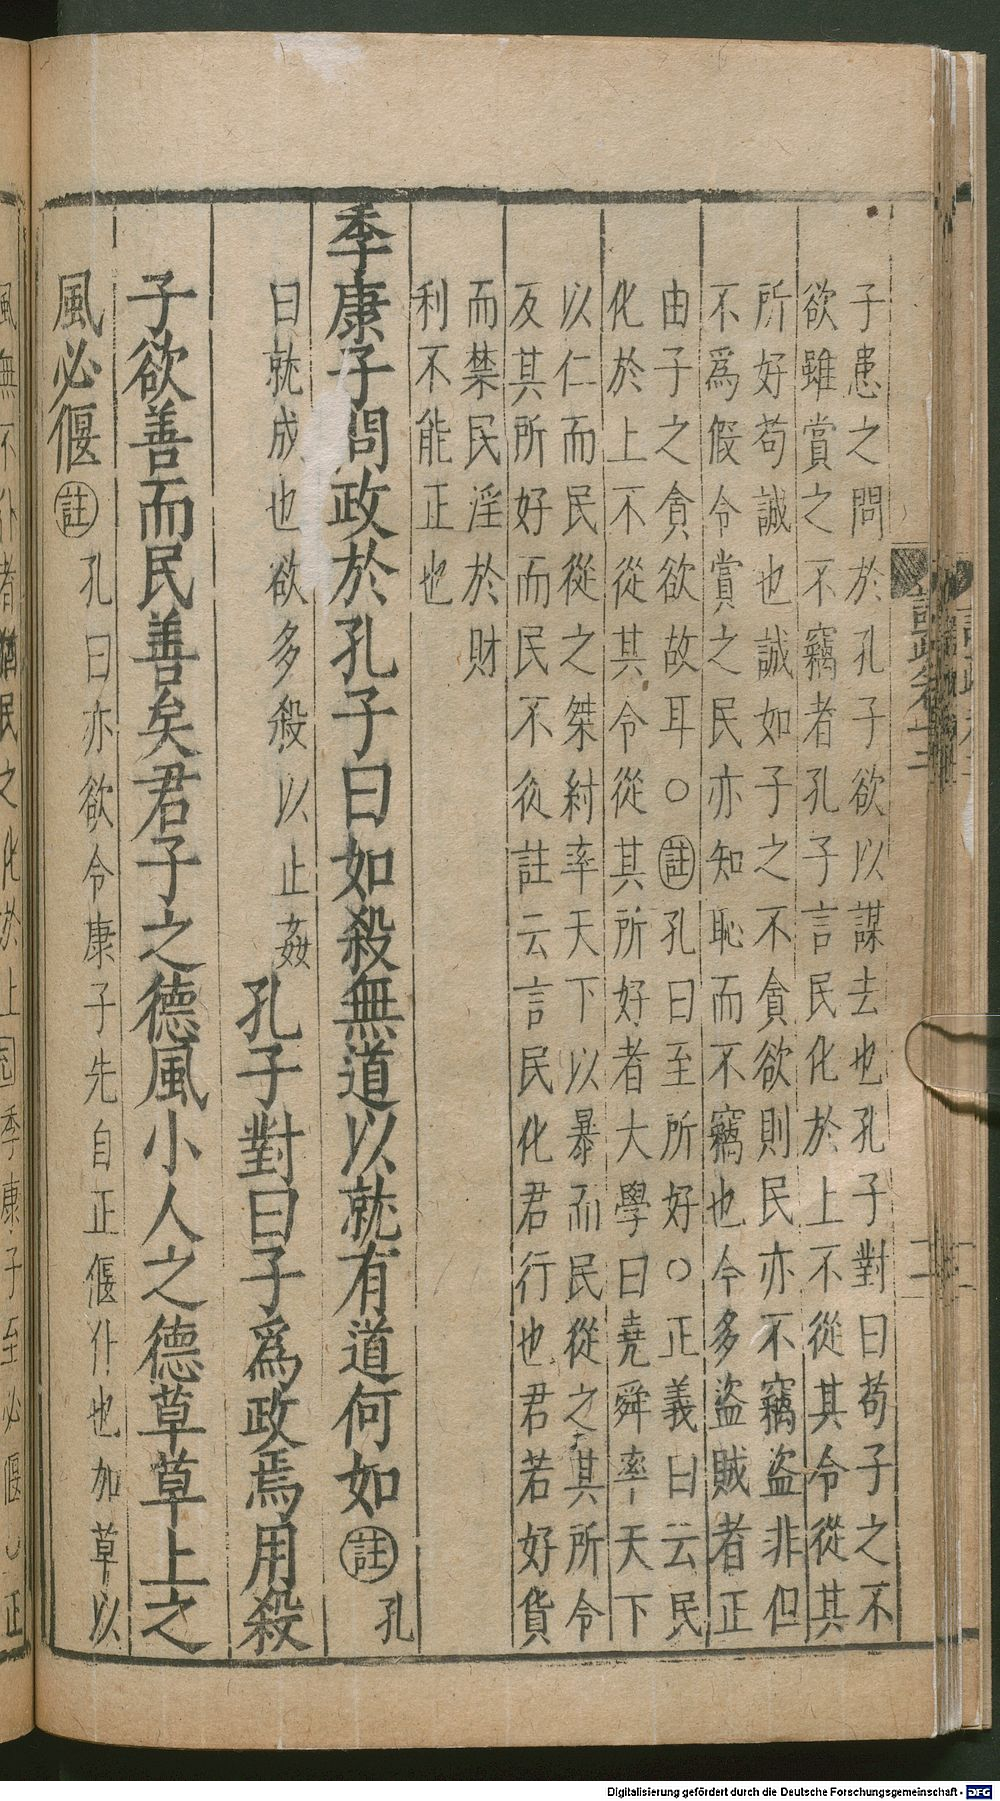 子患之問於孔子欲以謀去也孔子對曰苟子之不
欲雖賞之不竊者孔子言民化於上不從其令從其
所好苟誠也誠如子之不貪欲則民亦不竊盗非但
不爲假令賞之民亦知恥而不竊也今多盗賊者正
由子之貪欲故耳○註孔曰至所好○正義曰云民
化於上不從其令從其所好者大學曰堯舜率天下
以仁而民從之桀紂率天下以暴而民從之其所令
反其所好而民不從註云言民化君行也君若好貨
而禁民淫於財
利不能正也
季康子問政於孔子曰如殺無道以就有道何如註孔
曰就成也欲多殺以止姦孔子對曰子爲政焉用殺
子欲善而民善矣君子之德風小人之德草草上之
風必偃註孔曰亦欲令康子先自正偃仆也加草以
風無不仆者猶民之化於上季康子至必偃○正
Digitalisierung gefördert durch die Deutsche Forschungsgemeinschaft - DFG